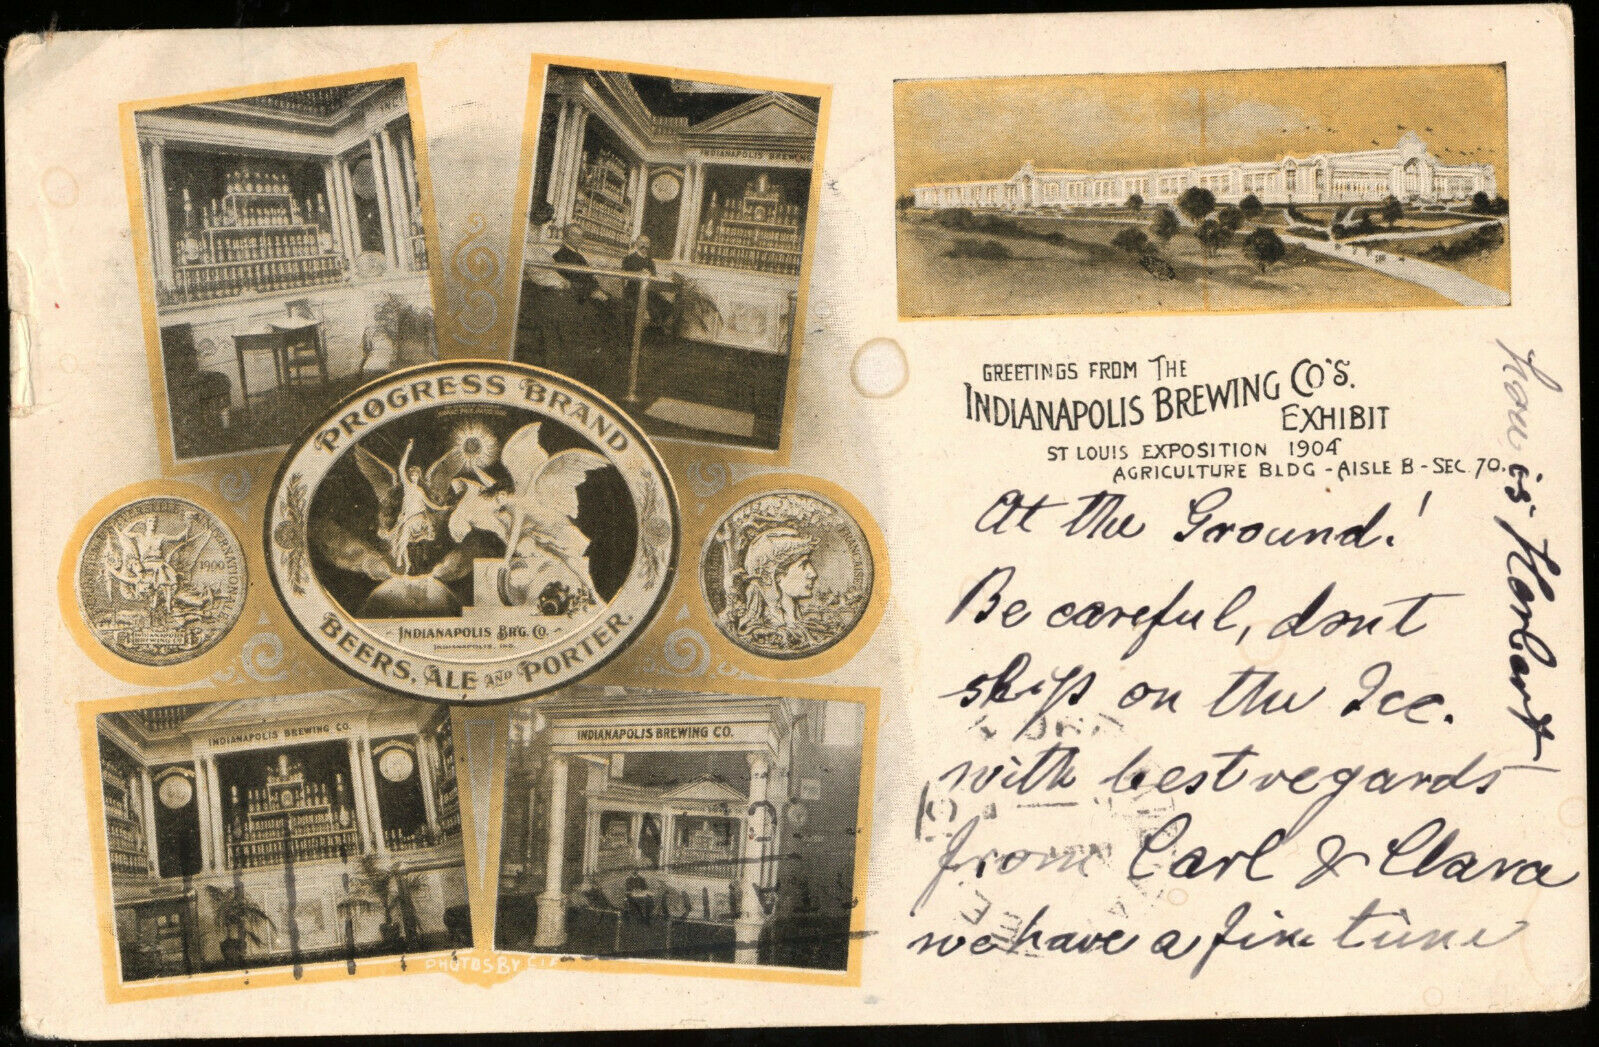 INDIANAPOLIS BREWING
PROGRESS BRAND
INDIANAPOLIS BR'G. CO.
INDIANAPOLIS, IND.
BEERS, ALE AND PORTER.
1900
INDIANAPOLIS
BREWING CO
INDIANAPOLIS BREWING CO.
INDIANAPOLIS BREWING CO.
PHOTOS BY
GREETINGS FROM THE
INDIANAPOLIS BREWING CO'S.
EXHIBIT
ST LOUIS EXPOSITION 1904
AGRICULTURE BLDG - AISLE B - SEC. 70.
At the Ground!
Be careful, dont
slip on the Ice.
with best regards
from Carl & Clara
we have a fine time
how is Herbert